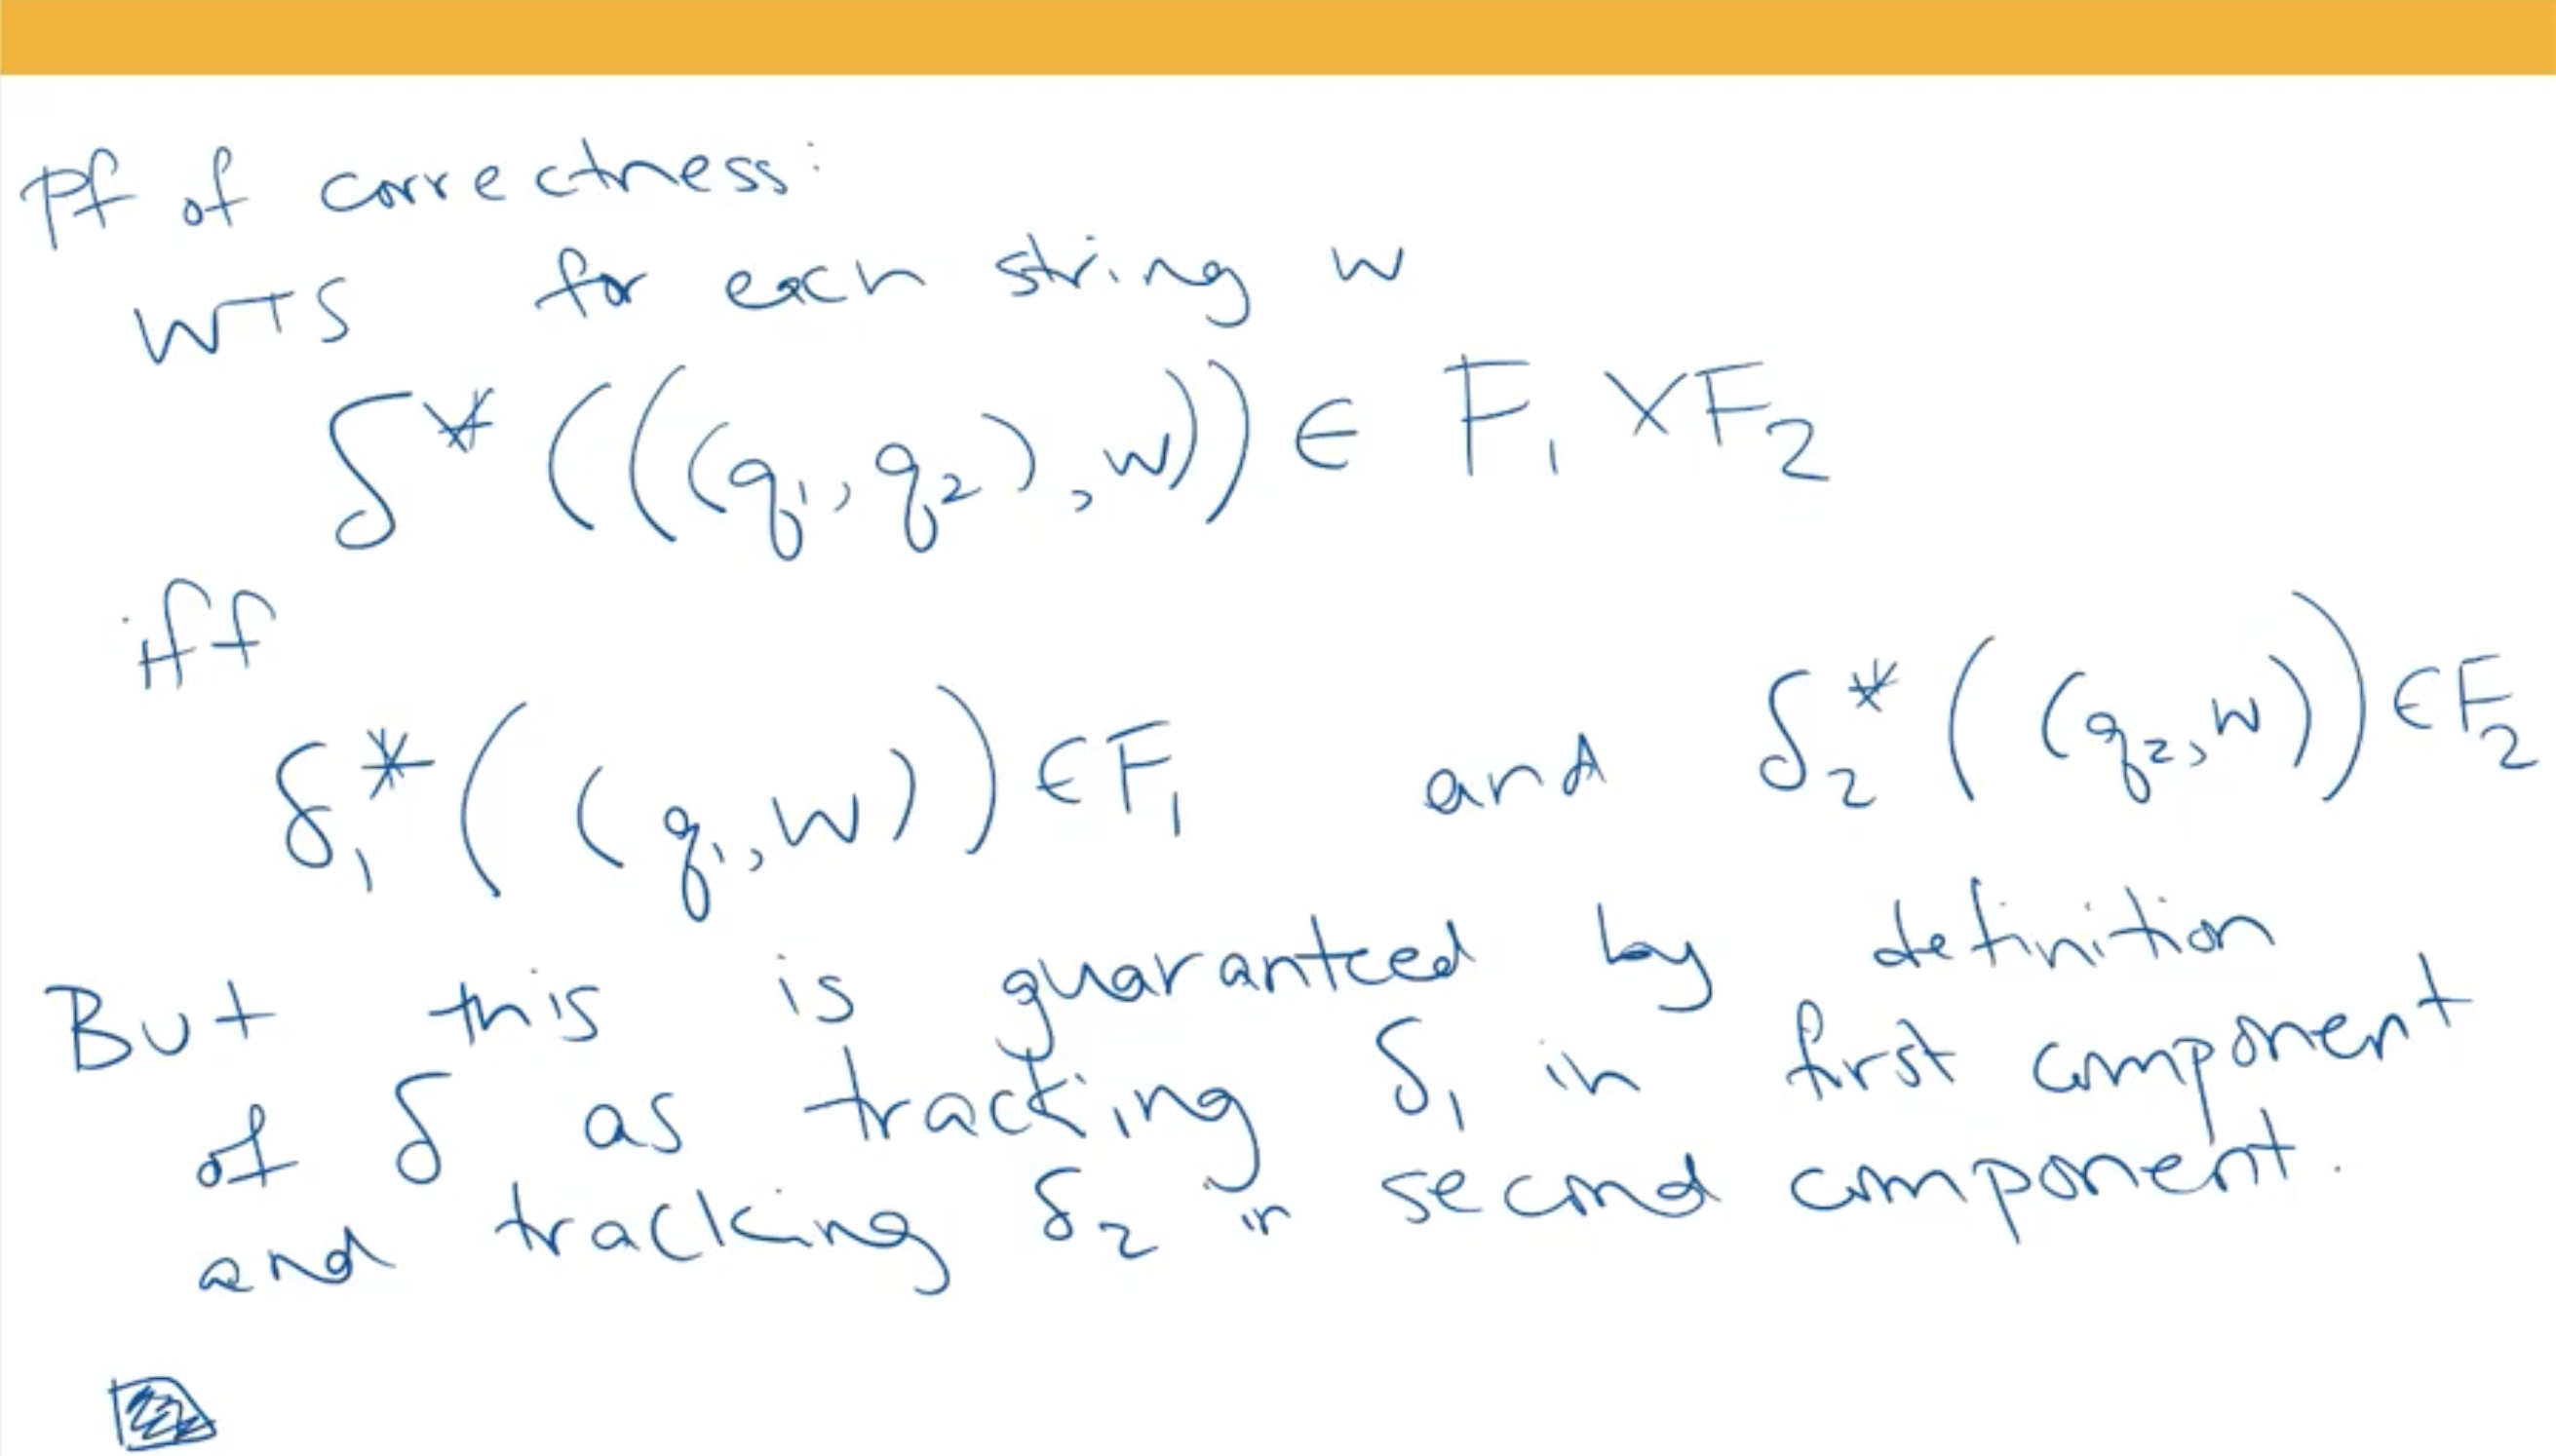 Pf of correctness:
WTS for each string w
δ* (((q₁, q₂), w)) ∈ F₁ × F₂
iff
δ₁* ((q₁, w)) ∈ F₁ and δ₂* ((q₂, w)) ∈ F₂
But this is guaranteed by definition
of δ as tracking δ₁ in first component
and tracking δ₂ in second component.